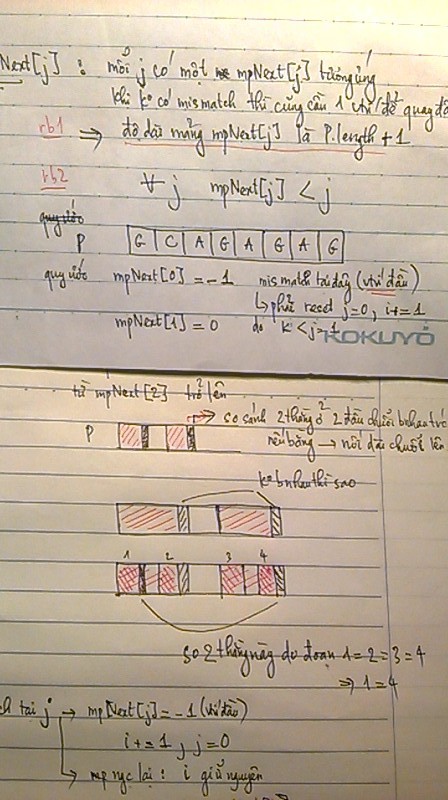 Next[j] : mỗi j có một mpNext[j] tương ứng
khi ko có mismatch thì cũng cần 1 vtrí để quay
rb1 ⇒ độ dài mảng mpNext[j] là P.length + 1
rb2 ∀ j mpNext[j] < j
quy ước
P G C A G A G A G
quy ước mpNext[0] = -1 mismatch tại đây (vtrí đầu)
↳ phải reset j=0, i+=1
mpNext[1] = 0 do k < j=1
KOKUYO
từ mpNext[2] trở lên
→ so sánh 2 thằng ở 2 đầu chuỗi bnhau trc
P nếu bằng → nối dài chuỗi lên
ko bnhau thì sao
1 2 3 4
so 2 thằng này do đoạn 1=2=3=4
⇒ 1=4
tại j → mpNext[j] = -1 (vtrí đầu)
i += 1, j = 0
→ ngc lại : i giữ nguyên